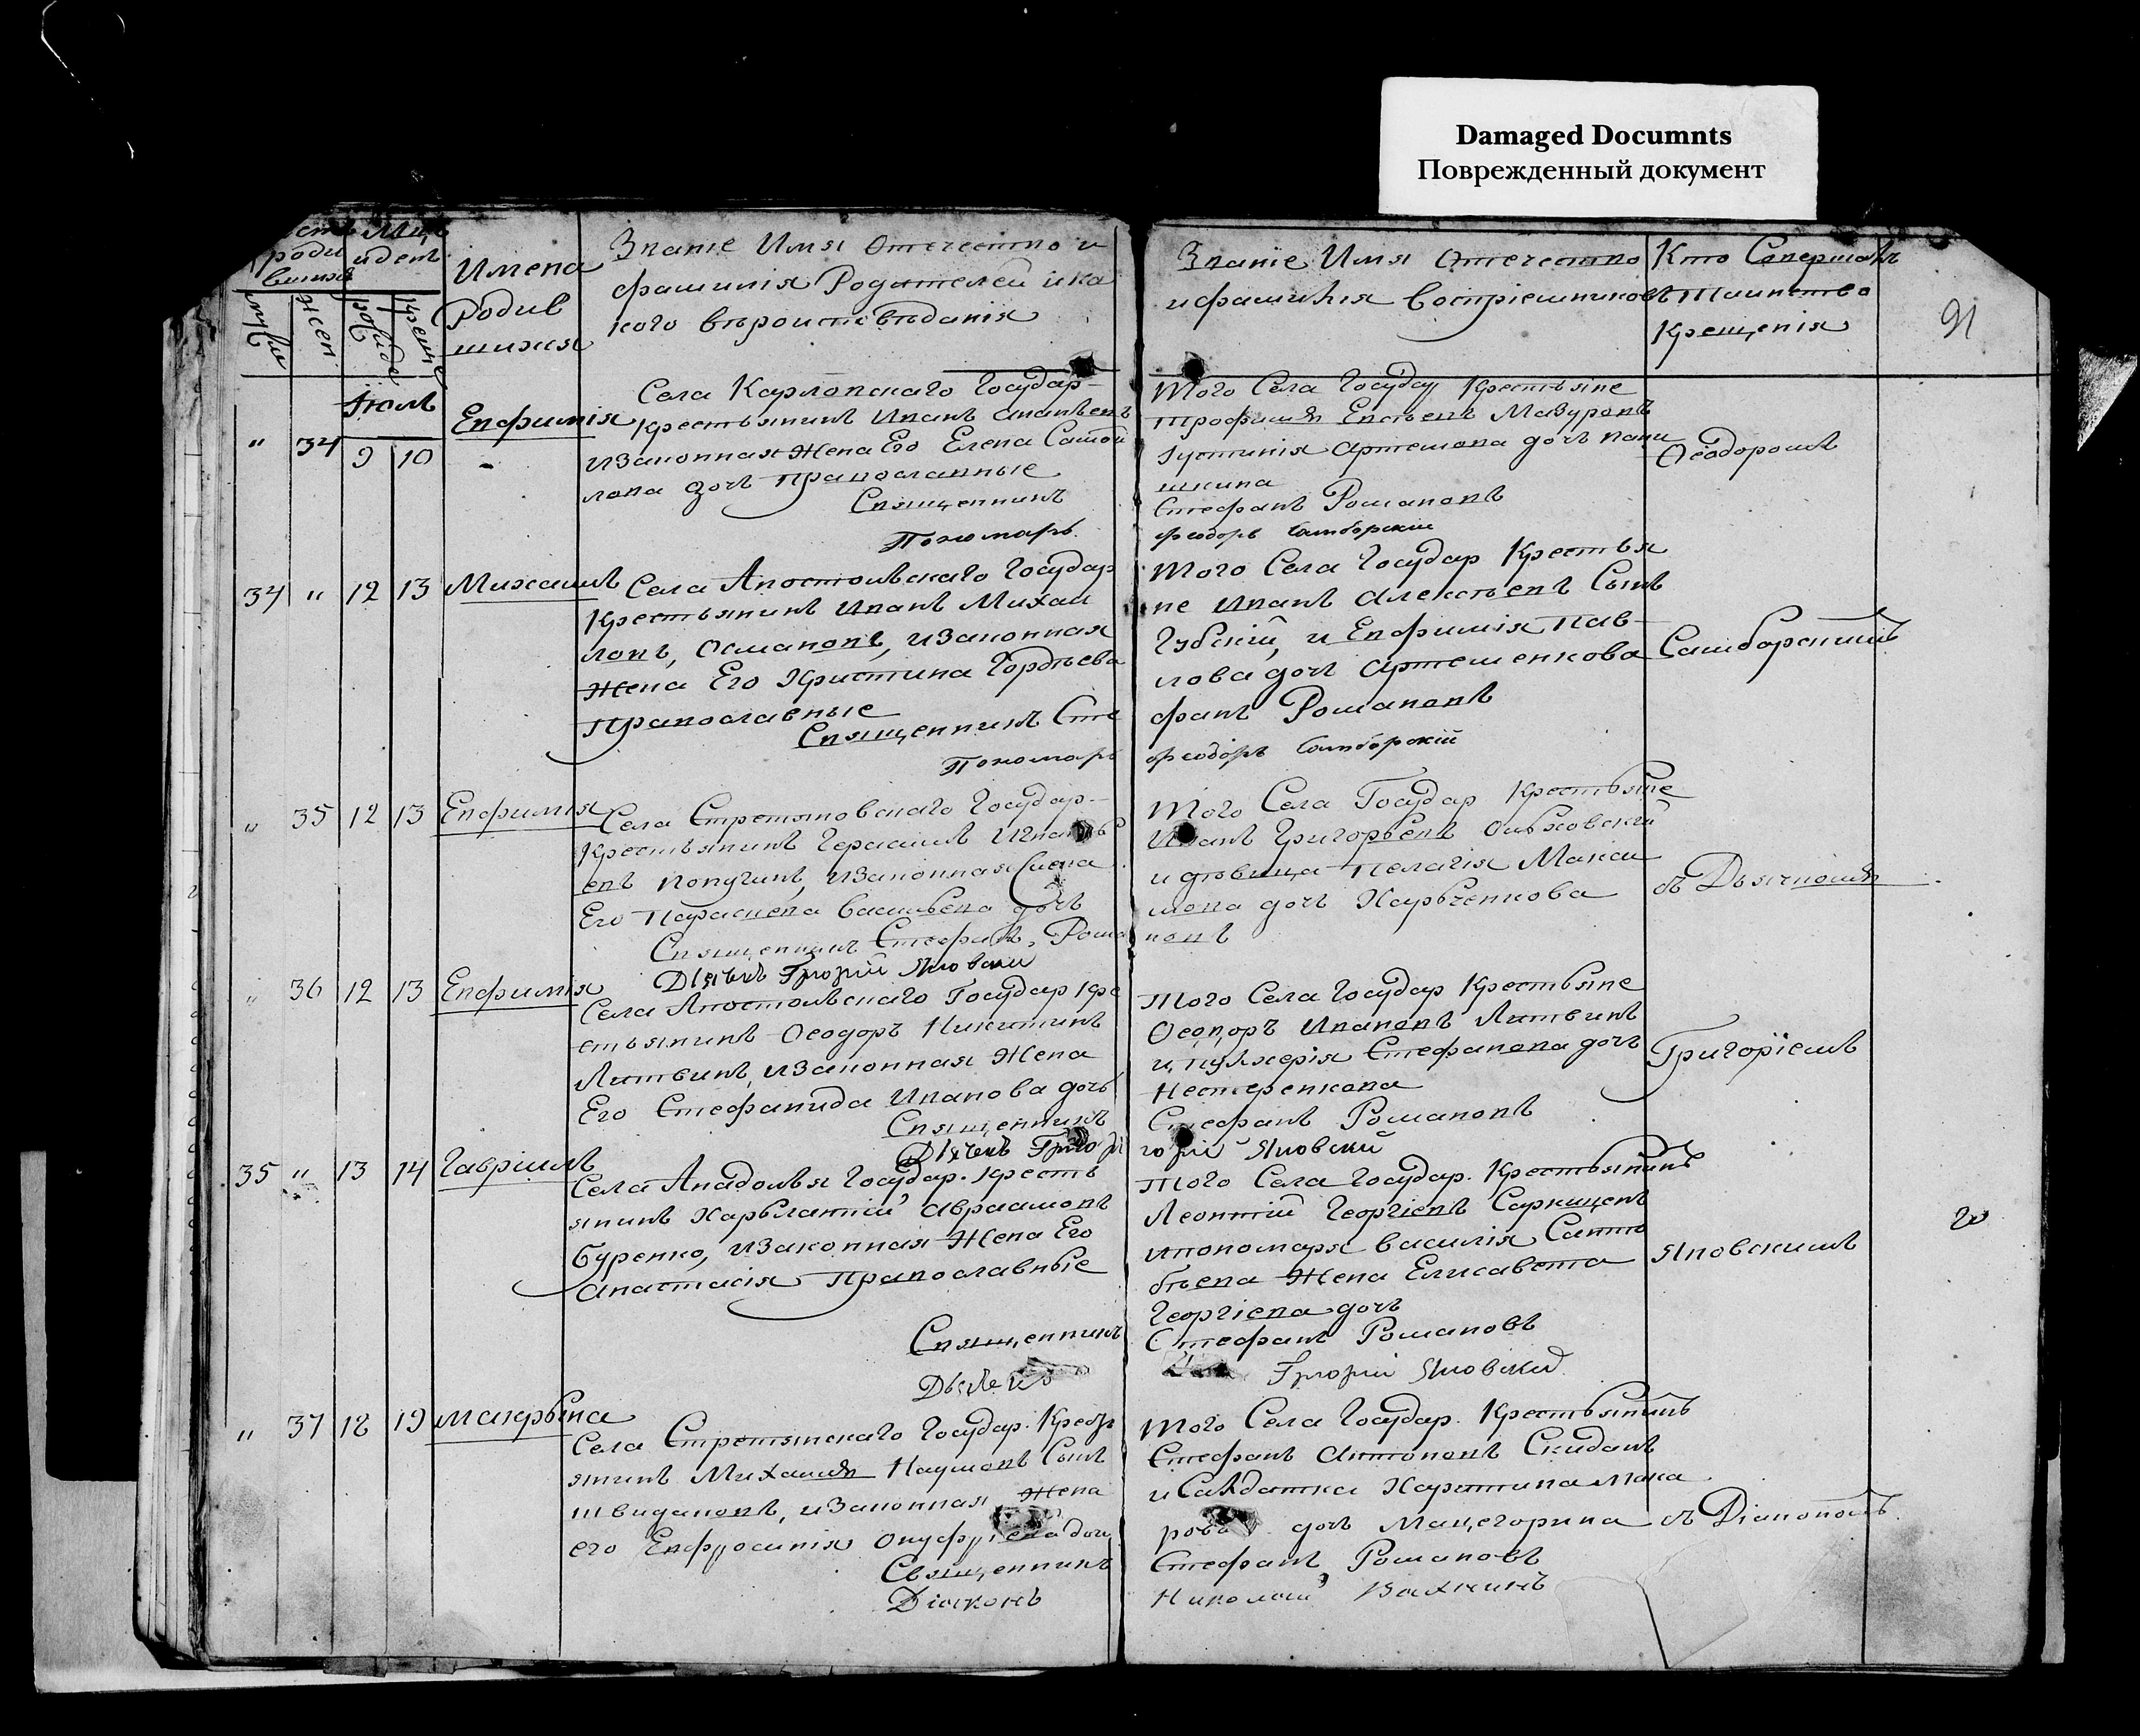 Damaged Documnts
Поврежденный документ
91
Имена
Родив
шихся
Званіе Имя Отечество и
фамилія Родителей и ка
кого вѣроисповѣданія
Званіе Имя Отечество
и фамилія Воспріемниковъ
Кто Совершалъ
Таинство
Крещенія
муж
жен
Іюль
" 34 9 10 Евфимія
Села Карловскаго Государ-
крестьянинъ Иванъ Ананьевъ
и законная Жена Его Елена Самой
лова дочь Православные
Священникъ
Пономарь
Того Села Государ Крестьяне
Трофимъ Евсѣевъ Мазуровъ
Іустинія Артемова дочь
шкина
Стефанъ Романовъ
Феодоръ Самборскій
Ѳеодоромъ
34 " 12 13 Михаилъ
Села Апостольскаго Государ
Крестьянинъ Иванъ Михаи
ловъ, Османовъ, и законная
Жена Его Христина Гордѣева
Православные
Священникъ Сте
Пономарь
Того Села Государ Крестья
не Иванъ Алексѣевъ Сынъ
Губскій, и Евфимія Пав
лова дочь Артеменкова
фанъ Романовъ
Феодоръ Самборскій
Самборскимъ
" 35 12 13 Евфимія
Села Стретиновскаго Государ-
Крестьянинъ Герасимъ Игнать
евъ Попугинъ, и законная Жена
Его Параскева Васильева дочь
Священникъ Стефанъ Рома
Дьячекъ Григорій Яновскій
Того Села Государ Крестьяне
Иванъ Григорьевъ Ольховскій
и дѣвица Пелагія Макси
мова дочь Харьченкова
новъ
съ Дьячкомъ
" 36 12 13 Евфимія
Села Апостольскаго Государ Кре
стьянинъ Ѳеодоръ Никитинъ
Литвинъ, и законная Жена
Его Стефанида Иванова дочь
Священникъ
Дьячекъ Григо
Того Села Государ Крестьяне
Ѳеодоръ Ивановъ Литвинъ
и Пулхерія Стефанова дочь
Нестеренкова
Стефанъ Романовъ
горій Яновскій
Григоріемъ
35 " 13 14 Гавріилъ
Села Анадолья Государ. Кресть
янинъ Харлампій Авраамовъ
Буренко, и законная Жена Его
Анастасія Православные
Священникъ
Дьячекъ
Того Села Государ. Крестьянинъ
Леонтій Георгіевъ
и пономаря Василія
Жена Елисавета
Георгіева дочь
Стефанъ Романовъ
Григорій Яновскій
Яновскимъ
" 37 18 19 Макрына
Села Государ. Кресть
янинъ Михаилъ Наумовъ Сынъ
Швидановъ, и законная Жена
его Евфросинія Онуфріева дочь
Священникъ
Діаконъ
Того Села Государ. Крестьянинъ
Стефанъ Антоновъ Скиданъ
и Салдатка Харитина Мака
рова дочь
Стефанъ Романовъ
Николай
съ Діакономъ